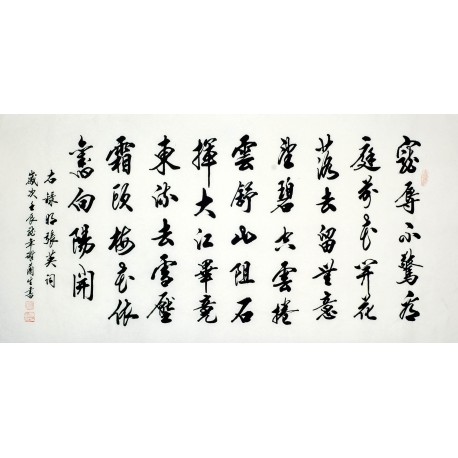 寵辱不驚看
庭前花開花
落去留無意
望碧空雲捲
雲舒山阻石
揮大江畢竟
東流去雪壓
霜欺梅花依
舊向陽開
右錄張英詞
歲次壬辰生書